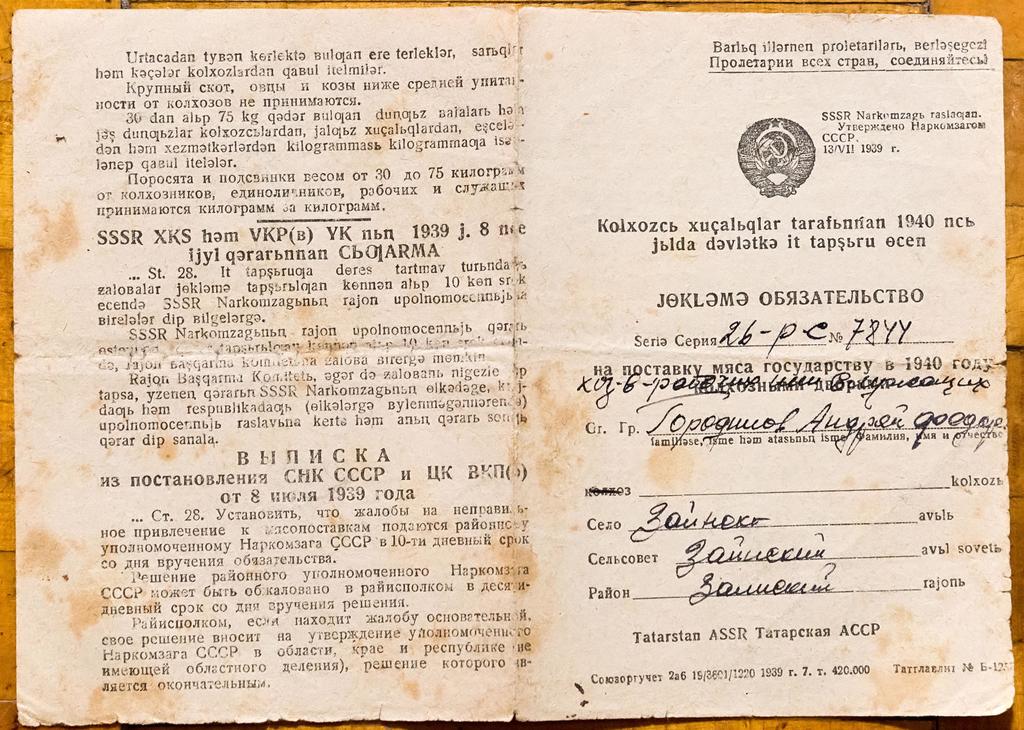 Urtacadan tyвən kərlektə вulqan ere terleklər, sarьqlar
həm kəçələr kolxozlardan qaвul itelmilər.
Крупный скот, овцы и козы ниже средней упитан-
ности от колхозов не принимаются.
30 dan alьp 75 kg qədər вulqan dunqьz вalalarь həm
jəş dunqьzlar kolxozcьlardan, jalqьz xuçalьqlardan, eşcelər-
dən həm xezmətkərlərdən kilogrammь kilogrammqa isəp-
lənep qaвul itelələr.
Поросята и подсвинки весом от 30 до 75 килограмм
от колхозников, единоличников, рабочих и служащих
принимаются килограмм за килограмм.
SSSR XKS həm VKP(в) YK nьꞑ 1939 j. 8 nce
ijyl qərarьnnan CЬQARMA
... St. 28. It tapşьruqa dərəs tartmav turьnda
zaloвalar jəkləmə tapşьrьlqan kənnən alьp 10 kən srok
ecendə SSSR Narkomzagьnьꞑ rajon upolnomocennьjьna
вirelələr dip вilgelərgə.
SSSR Narkomzagьnьꞑ rajon upolnomocennьjь qərarь
tapşьrьlqan kənnən alьp 10 kən
də, rajon вaşqarma komitetьna zaloвa вirergə məmkin.
Rajon Вaşqarma Komitetь, əgər də zaloвanь nigezle
tapsa, yzeneꞑ qərarьn SSSR Narkomzagьnьꞑ əlkədəge, kraj-
daqь həm respuвlikadaqь (əlkələrgə вylenməgənnərendə)
upolnomocennьjь raslavьna kertə həm anьꞑ qərarь soꞑqь
qərar dip sanala.
ВЫПИСКА
из постановления СНК СССР и ЦК ВКП(б)
от 8 июля 1939 года
... Ст. 28. Установить, что жалобы на неправиль-
ное привлечение к мясопоставкам подаются районному
уполномоченному Наркомзага СССР в 10-ти дневный срок
со дня вручения обязательства.
Решение районного уполномоченного Наркомзага
СССР может быть обжаловано в райисполком в десяти-
дневный срок со дня вручения решения.
Райисполком, если находит жалобу основательной,
свое решение вносит на утверждение уполномоченного
Наркомзага СССР в области, крае и республике (не
имеющей областного деления), решение которого яв-
ляется окончательным.
Barlьq illərneꞑ proletarilarь, вerləşegez!
Пролетарии всех стран, соединяйтесь!
SSSR Narkomzagь raslaqan.
Утверждено Наркомзагом
СССР.
13/VII 1939 г.
Kolxozcь xuçalьqlar tarafьnnan 1940 ncь
jьlda dəvlətkə it tapşьru əcen
JƏKLƏMƏ ОБЯЗАТЕЛЬСТВО
Seriə Серия 26-р-с № 7844
на поставку мяса государству в 1940 году
хоз-в рабочих или служащих
колхозными дворами
Gr. Гр. Городилов Андрей
familiəse, isme həm atasьnьꞑ isme фамилия, имя и отчество
колхоз kolxozь
Село Заинск avьlь
Сельсовет Заинский avьl sovetь
Район Заинский rajonь
Tatarstan ASSR Татарская АССР
Союзоргучет 2а6 19/3601/1220 1939 г. 7. т. 420.000 Татглавлит № Б-125